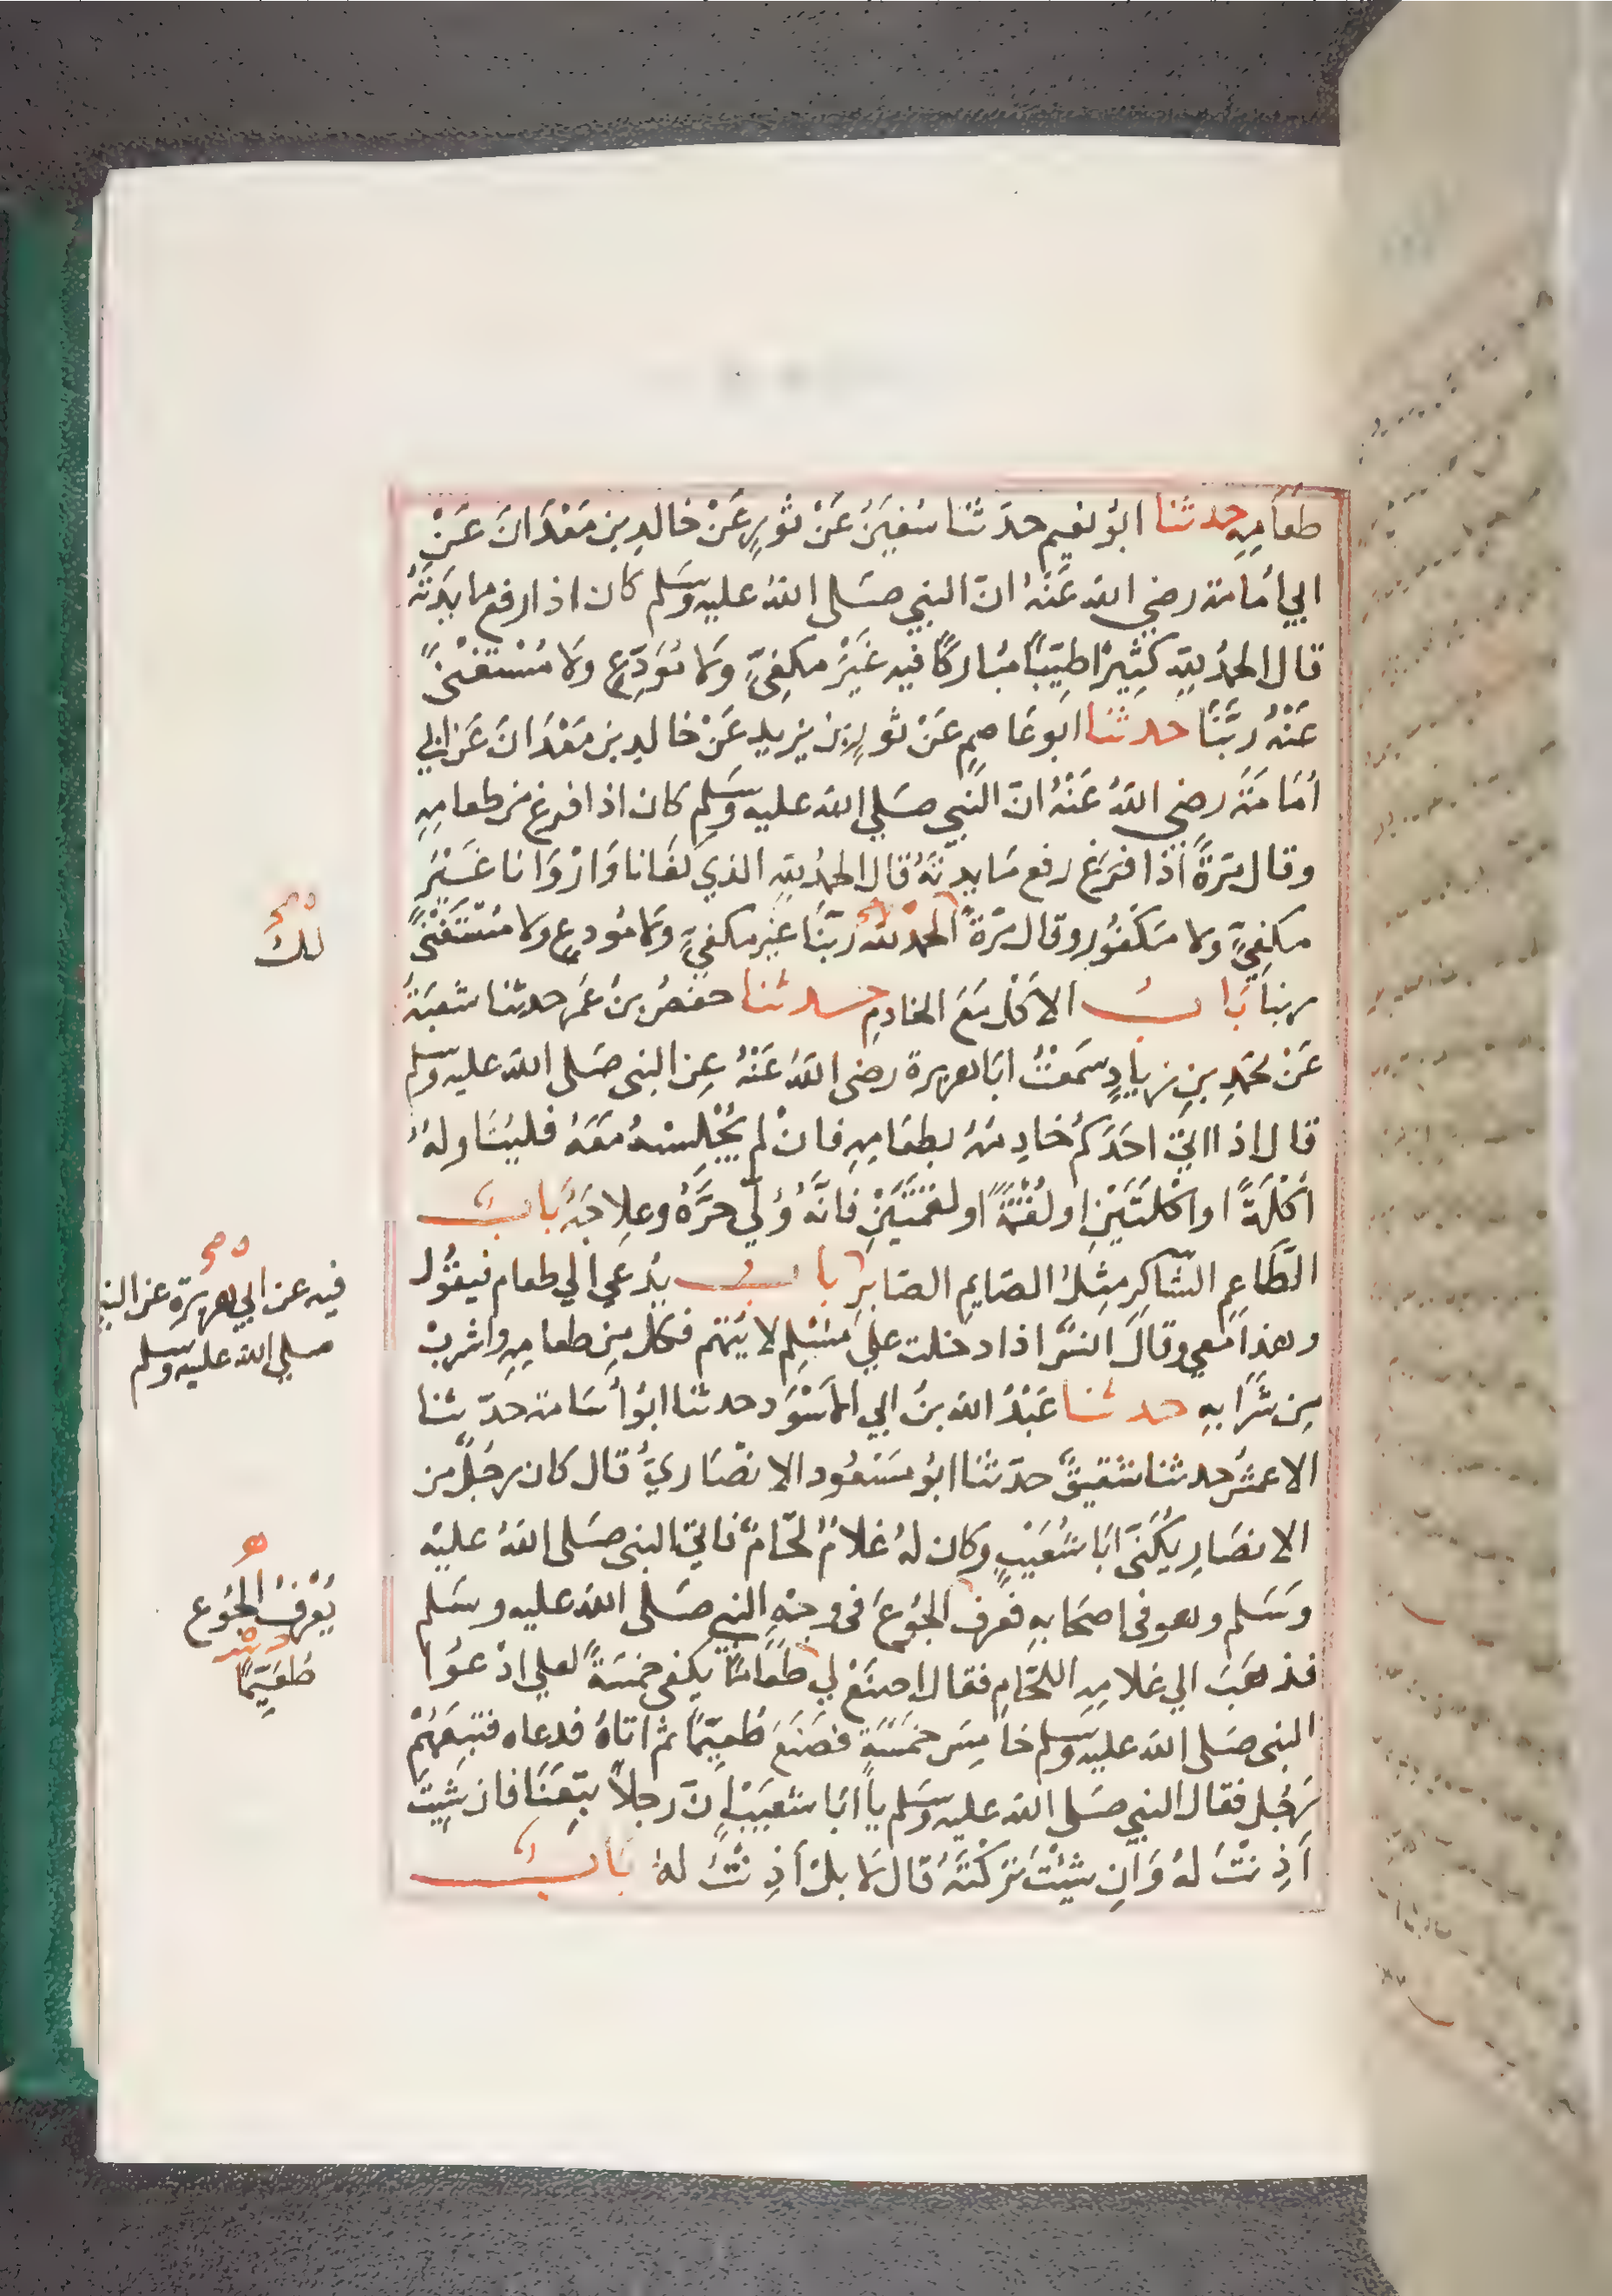 طعَامِهِ حدثنا ابوُ نعيم حدَثنا سُفيَنُ عَنْ ثورٍ عَنْ خالدِ بن مَعْدَانَ عَنْ
ابي اُمَامة رضي الله عَنْهُ انّ النبي صَلى اللهُ عليه وسَلم كان اذا رفع مايدَتَهُ
قال الحمدُ للهِ كثِيرًا طيّبًا مُباركًا فيه غَيْرُ مكفِيٍّ وَلا مُوَدَّعٍ ولا مُسْتغْنًى
عَنْهُ ربَّنَا حدثنا ابو عَاصِمٍ عَنْ ثورِ بن يزيد عَنْ خالدِ بن مَعْدَانَ عَن ابي
اُمَامَة رضي اللهُ عَنْهُ انّ النبي صَلي الله عليه وسَلم كان اذا فرغ من طعامِهِ
وقال مَرّةً اذَا فرَغ رفع مَايدتَهُ قال الحمدُ للهِ الذي كفَانا وَارْوَانا غَيْرَ
مكفِيٍّ ولا مَكْفُورٍ وقال مَرّةً الحمدُ لله رَبّنَا غَيْر مكفِيٍّ وَلا مُودعٍ ولا مُسْتَغْنًى
ربنا بَابُ الاكْل مَعَ الخادِم حدثنا حفصُ بنُ عُمَر حدثنا شعبَةُ
عَنْ محمَّدِ بنِ زيادٍ سَمعْتُ ابَا هريرة رضى اللهُ عَنْهُ عِن النبى صَلى الله عليه وسلم
قال اذا اتي احَدَكُم خادِمهُ بطعَامِهِ فانْ لم يُجْلِسْهُ مَعَهُ فليُنَاولهُ
اُكْلَةً او اكْلتَيْنِ او لُقْمَةً او لقمَتَيْنِ فانَّهُ وُلّي حَرَّهُ وعلِاجَهُ بَابُ
الطَّاعِم الشّاكِر مِثلُ الصَايم الصَابِر بابُ يدُعي الي طعام فيقوُل
وهذا مَعي وقالَ انسٌ اذا دخلت عليَ مسْلمِ لا يُتهم فكل مِن طعامِهِ واشربْ
مِن شرَابهِ حدثنا عَبْدُ الله بنُ ابي الاسْوَد حدثنا ابوُ اُسَامة حدّثنا
الاعمشُ حدثنا شقيقٌ حدّثنا ابوُ مسَعوُد الانصَاريّ قال كان رجُلٌ من
الانصَارِ يُكْنَى ابَا شُعَيْبٍ وكان لهُ غلامٌ لحّامٌ فاتي النبى صَلى اللهُ عليْه
وَسَلم وهو فى اصحَابهِ فعَرف الجُوُعَ فى وجهِ النبي صَلى الله عليه وسَلم
فذهَبَ الي غلامِهِ اللحّامِ فقال اصنَعْ لي طعَامًا يكفى خمَسَةً لعلي ادْعُوا
النبى صَلى الله عليه وسَلم خامِسَ خمَسَةٍ فصَنَعَ طُعيّمًا ثم اتاهُ فدعاه فتبَعهُمْ
رَجُل فقال النبي صَلى الله عليه وسَلم ياَ ابَا شعيَبْ اِنّ رجلاً تبِعَنَا فان شِيتَ
اَذِنْتَ لهُ وَان شِيْتَ ترَكْتَهُ قال لا بلْ اَذِنْتُ لهُ بَابُ
صح
لك
صح
فيه عن ابي هريرة عن النبي
صلي الله عليه وسلم
هـ
يَعْرفُ الجُوُع
طُعَيّمًا